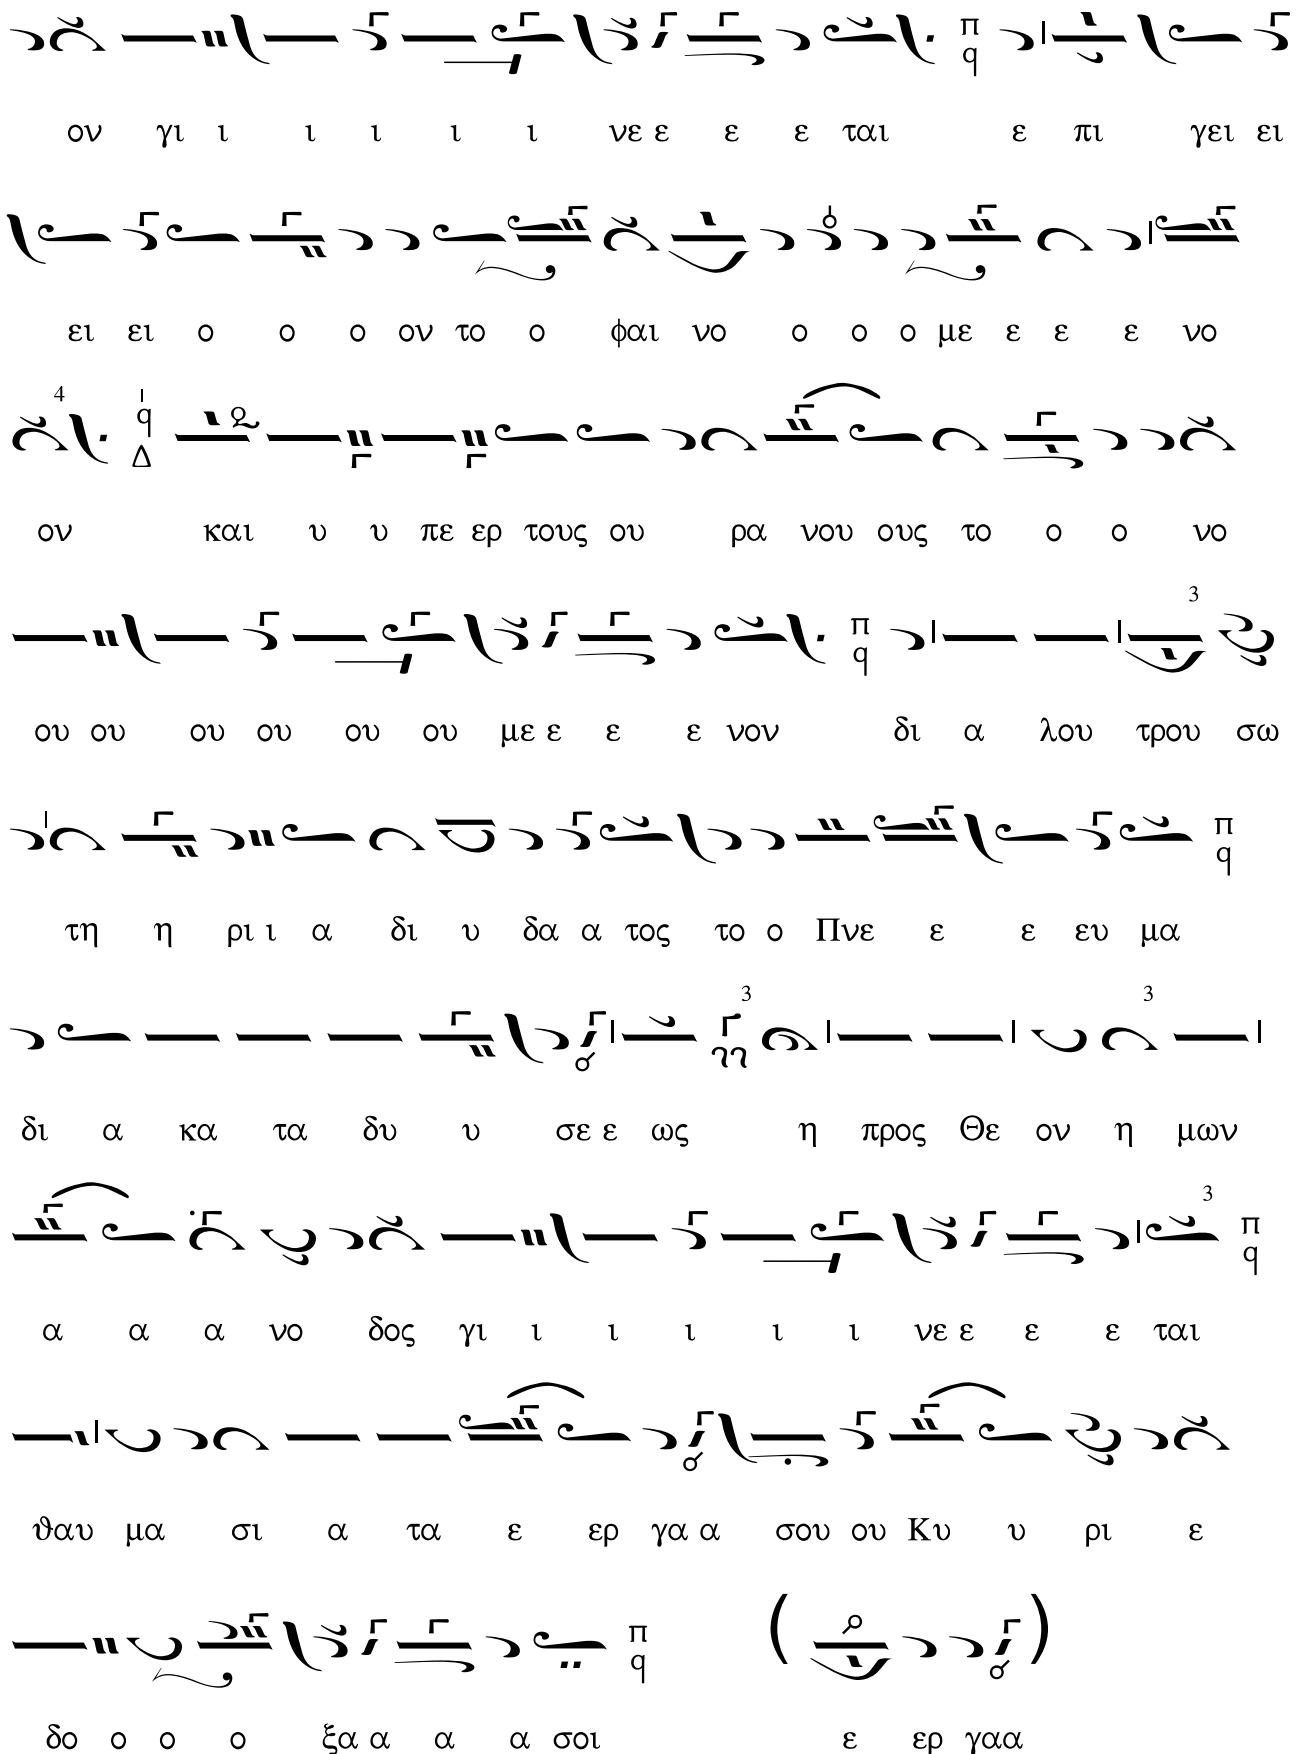 π q
ον γι ι ι ι ι ι νε ε ε ε ται ε πι γει ει
ει ει ο ο ο ον το ο φαι νο ο ο ο με ε ε ε νο
4 q Δ
ον και υ υ πε ερ τους ου ρα νου ους το ο ο νο
3 π q
ου ου ου ου ου ου με ε ε ε νον δι α λου τρου σω
π q
τη η ρι ι α δι υ δα α τος το ο Πνε ε ε ευ μα
3 3
δι α κα τα δυ υ σε ε ως η προς Θε ον η μων
3 π q
α α α νο δος γι ι ι ι ι ι νε ε ε ε ται
ϑαυ μα σι α τα ε ερ γα α σου ου Κυ υ ρι ε
π q ( )
δο ο ο ο ξα α α α σοι ε ερ γαα